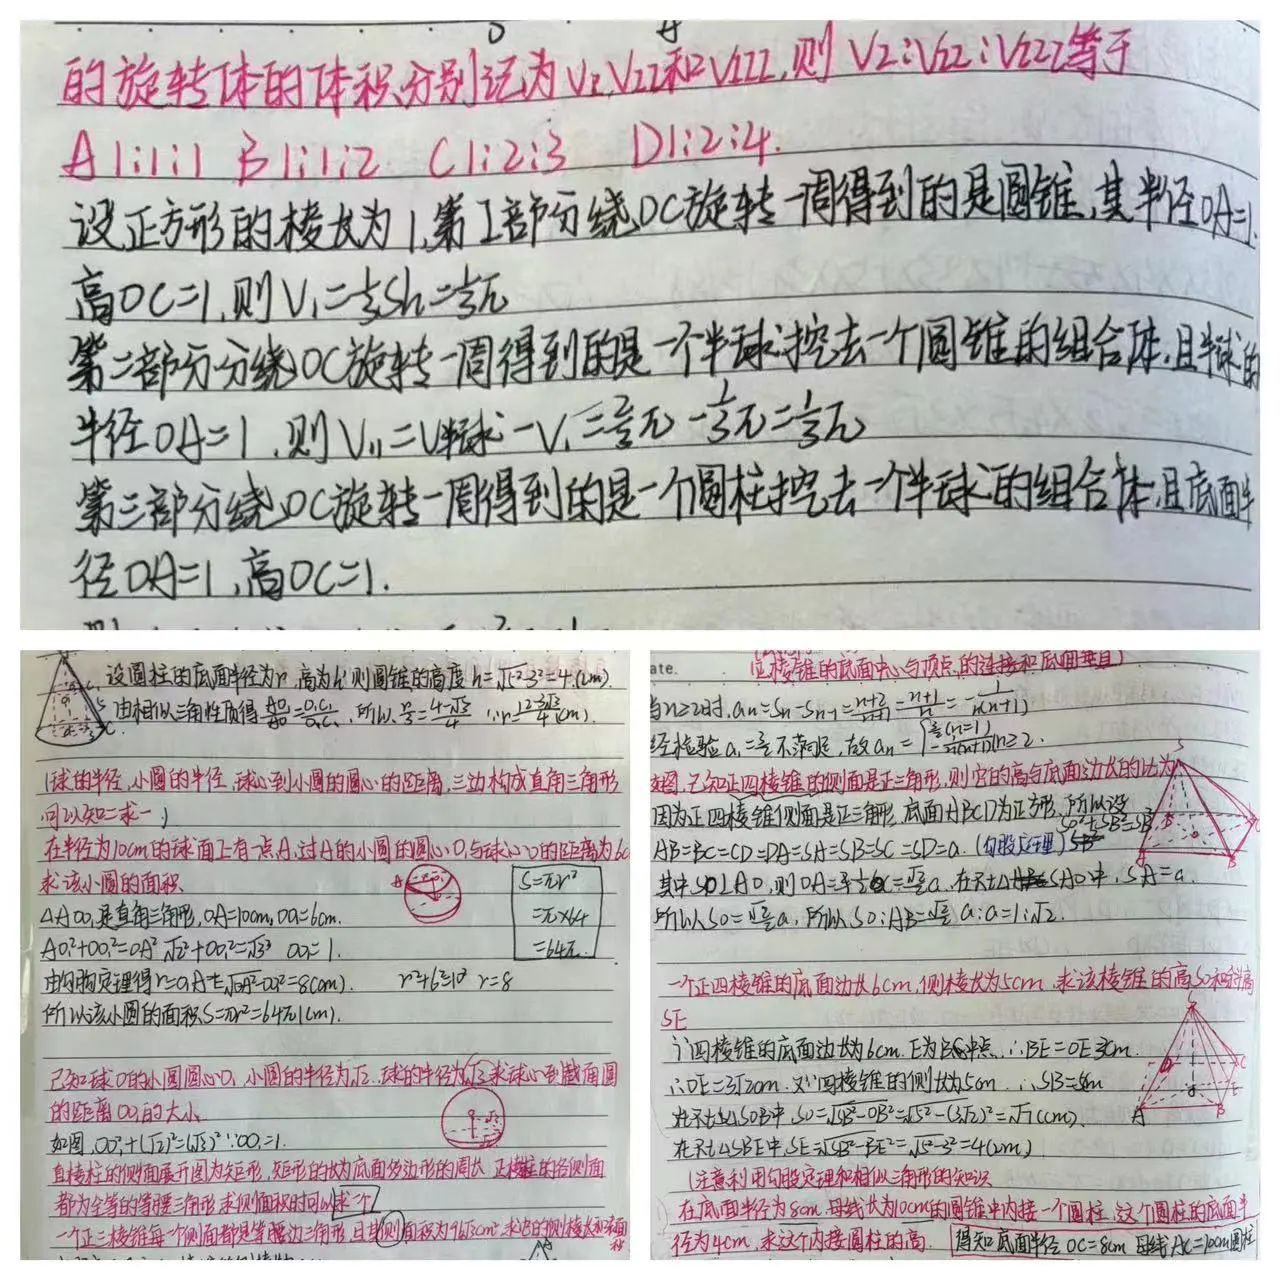 的旋转体的体积分别记为VI,VII和VIII,则VI:VII:VIII等于
A 1:1:1 B 1:1:2 C 1:2:3 D 1:2:4.
设正方形的棱长为1,第I部分绕OC旋转一周得到的是圆锥,其半径OA=1.
高OC=1.则V₁=⅓Sh=⅓π
第二部分分绕OC旋转一周得到的是一个半球挖去一个圆锥的组合体,且半球的
半径OA=1,则V₁₁=V半球-V₁=⅔π-⅓π=⅓π
第三部分绕OC旋转一周得到的是一个圆柱挖去一个半球的组合体,且底面半
径OA=1,高OC=1.
设圆柱的底面半径为r,高为h'则圆锥的高度h=√5²-3²=4.(cm).
由相似三角性质得
(球的半径,小圆的半径,球心到小圆的圆心的距离,三边构成直角三角形
可以知二求一)
在半径为10cm的球面上有一点A,过A的小圆的圆心O,与球心O的距离为6c
求该小圆的面积.
S=πr²
=π×64
=64π.
△AOO₁是直角三角形,OA=10cm,OO₁=6cm.
AO₁²+OO₁²=OA² √2²+OO₁²=√3² OO₁=1.
由勾股定理得r=O₁A=√OA²-OO₁²=8(cm). r²+6²=10² r=8
所以该小圆的面积S=πr²=64π(cm).
已知球O的小圆圆心O₁小圆的半径为√2.球的半径为√3求球心到截面圆
的距离OO₁的大小
如图,OO₁²+(√2)²=(√3)²∵OO₁=1.
直棱柱的侧面展开图为矩形,矩形的长为底面多边形的周长 正棱的各侧面
都为全等的等腰三角形求侧面积时可以求一个
一个正三棱锥每个侧面都是等腰边三角形,且其侧面积为9√3cm²,求的侧棱长和
ate.
(正棱锥的底面中心与顶点的连接和底面垂直)
当n≥2时,an=Sn-Sn-1=n+2/n+1-n+1/n=-1/n(n+1)
经检验a₁=3/2不满足,故an={3/2(n=1) -1/n(n+1)(n≥2.
如图,已知正四棱锥的侧面是正三角形,则它的高与底面边长的比为
因为正四棱锥侧面是正三角形.底面ABCD为正方形,所以设
AB=BC=CD=DA=SA=SB=SC=SD=a.(勾股定理)
其中SO⊥AO,则OA=½=√2/2a.在Rt△SAO中,SA=a.
所以SO=√2/2a,所以SO:AB=√2/2a:a=1:√2.
一个正四棱锥的底面边长6cm,侧棱长为5cm,求该棱锥的高SO和斜高
SE
∵四棱锥的底面边长为6cm.E为BC中点.∴BE=OE=3cm.
∴OE=3√2cm.又∵四棱锥的侧长为5cm ∴SB=5cm
在Rt△SOB中,SO=√SB²-OB²=√5²-(3√2)²=√7(cm).
在Rt△SBE中,SE=√SB²-BE²=√5²-3²=4(cm)
(注意利用勾股定理和相似三角形的知识
在底面半径为8cm.母线长为10cm的圆锥中内接一个圆柱.这个圆柱的底面半
径为4cm,求这个内接圆柱的高. 得知底面半径OC=8cm 母线AC=10cm圆柱